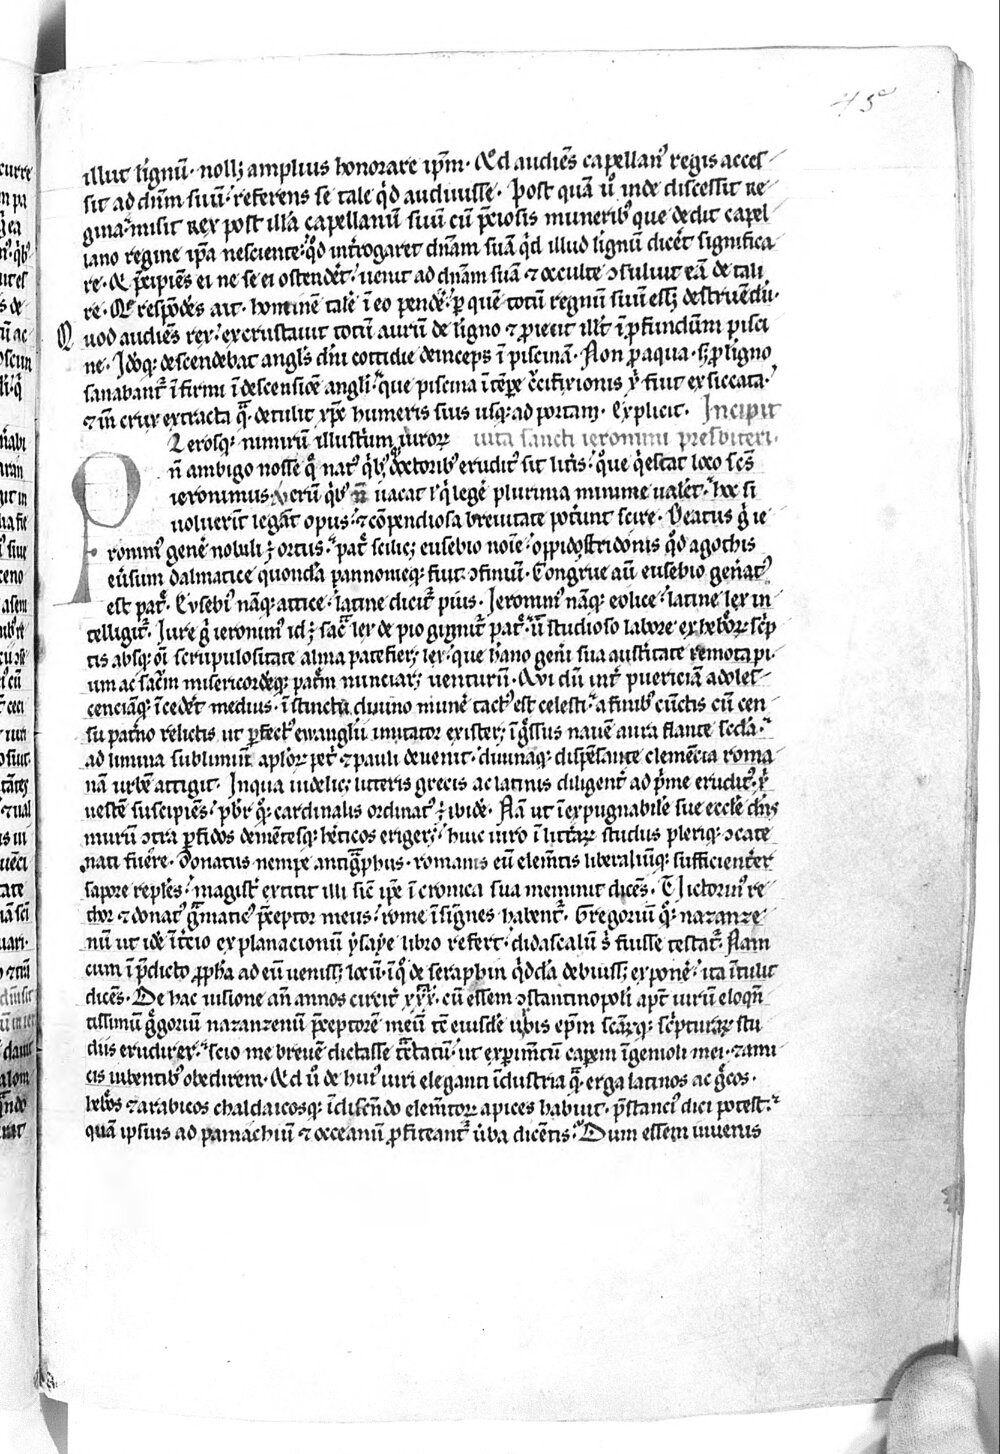 45
illut lignū · noll; amplius honorare ip̄m · Qd audiēs capellan᷒ regis acces
sit ad dn̄m suū · referens se tale qd̄ audiuisse · Post quā u̅ inde discessit re
gina · misit rex post illā capellanū suū cū p̄ciosis munerib᷒ que dedit capel
lano regine ip̄a nesciente · qd̄ int̄rogaret dn̄am suā qd̄ illud lignū dicēt significa
re · Qd p̄cipiēs ei ne se ei ostendēt · uenit ad dn̄am suā ⁊ occulte ↄsuluit eā de tali
re · Q̄ respōdēs ait · hominē talē ī eo pendē p̱ quē totū regnū suū ess; destruēdū ·
Quod audiēs rex · excrustauit totū aurū de ligno ⁊ proiecit illd̄ ī p̱fundūm pisci
ne · Idoq; descendebat angl̄s dn̄i cottidie deinceps ī piscinā · Non p̱ aqua · s; p̱ ligno
sanabant᷒ īfirmi ī descensiōe angli · que piscina ī tēpe c̄cifixionis x̄ fuit exsiccata ·
⁊ in crux extracta q̄ detulit xp̄c humeris suis usq; ad portam · Explicit · Incipit
Plerosq; nimirū illustrium uiroꝝ uita sancti ieronimi presbiteri ·
n̄ ambigo nosse q̄ nat᷒ qb᷒ doctorib᷒ erudit᷒ sit litīs · que q̄escat loco sc̄s
ieronimus · uerū qb᷒ n̄ uacat l' q̄ legē plurima minime ualēt · hoc si
uoluerit legāt opus · ⁊ cōpendiosa breuitate potūnt scire · Beatus ḡ ie
ronim᷒ genē nobili ē ortus · pat̄ scilic; eusebio noīe · oppido stridonis qd̄ a gothis
eūsum dalmatice quondā pannonieq; fuit ↄfiniū · Congrue aū eusebio genāt᷒
est pat̄ · Eusebi᷒ nāq; attice · latine dicit᷒ pius · Ieronim᷒ nāq; eolice · latine lex in
telligit᷒ · Iure ḡ ieronim᷒ id ē sac̄ lex de pio gignit᷒ pat̄ · ū studioso labore ex hebōꝝ sc̄p
tis absq; oī scrupulositate alma patefier; lex · que hāno genī sua austītate remota pi
um ac sac̄m misericordeq; patm̄ nunciar; uenturū · Qui dū int̄ puericiā adoles
cenciāq; īcedēt medius · īstinctu diuino munē tact᷒ est celesti · a finib᷒ cūctis cū cen
su patno relictis ut p̱fect᷒ ewanglii imitator exister; īgressus nauē aura flante scd̄a ·
ad limina sublimiū aplōꝝ petī ⁊ pauli deuenit · diuinaq; dispēsante clemēcia roma
nā urbē attigit · Inqua uidelic; litteris grecis ac latinis diligent̄ ad p̄me erudit᷒ x̄
uestē suscipiēs · pb̄r q̄ cardinalis ordinat᷒ ē ibidē · Nā ut īexpugnabilē sue eccl̄e dn̄s
murū ↄtra p̱fidos demētesq; hēticos eriger; · huic uiro ī litt̄aꝝ studiis pleriq; ↄcate
nati fuēre · Donatus nempe antiq̄grphus · romanis eū elemtīs liberaliūq; sufficient̄er
sapore replēs · magist̄ extitit illi sic̄ ip̄e ī cronica sua meminit dicēs · Victorin᷒ re
thor ⁊ donat᷒ g̃matic᷒ p̄ceptor meus · rome īsignes habent᷒ · Gregoriū q̄ nazanze
nū ut idē ītcio explanacionū ysaye libro refert · didascalū s̄ fuisse testat᷒ · Nam
cum ī p̄dicto p̱pha ad eū ueniss; locū · ī q̄ de seraphin qd̄dā debuiss; exponē · ita ītulit
dicēs · De hac uisione an̄ annos circit̄ xxx · cū essem ↄstantinopoli apt̄ uirū eloqn̄
tissimū g̃goriū nazanzenū p̄ceptorē meū tē eiusdē urbis ep̄m scāꝝq; sc̄pturaꝝ stu
diis erudirer · scio me breuē dictasse tc̄tatū · ut experim̄tū capem īgenioli mei · ⁊ ami
cis iubentib᷒ obedirem · Qd u̅ de hui᷒ uiri eleganti īdustria q̄ erga latinos ac g̃cos ·
hebōs ⁊ arabicos chaldaicosq; īdiscēndo elemtoꝝ apices habuit · p̄stanci᷒ dici potest ·
quā ipsius ad pamachiū ⁊ occeanū p̱fiteant᷒ ūba dicētis · Dum essem iuuenis